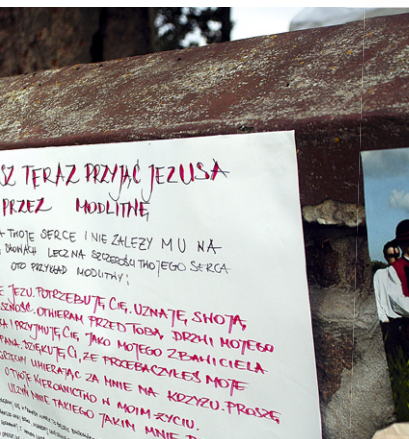 SZ TERAZ PRZYJĄĆ JEZUSA
PRZEZ MODLITWĘ
A TWOJE SERCE I NIE ZALEŻY MU NA
SŁOWACH LECZ NA SZCZEROŚCI TWOJEGO SERCA
OTO PRZYKŁAD MODLITWY:
E JEZU. POTRZEBUJĘ CIĘ, UZNAJĘ, SWOJĄ
SZNOŚĆ. OTWIERAM PRZED TOBĄ DRZWI MOJEGO
A I PRZYJMUJĘ CIĘ, JAKO MOJEGO ZBAWICIELA
PANA. DZIĘKUJĘ CI, ŻE PRZEBACZYŁEŚ MOJE
GRZECHY UMIERAJĄC ZA MNIE NA KRZYŻU. PROSZĘ
O TWOJE KIEROWNICTWO W MOIM ŻYCIU.
UCZYŃ MNIE TAKIEGO JAKIM MNIE